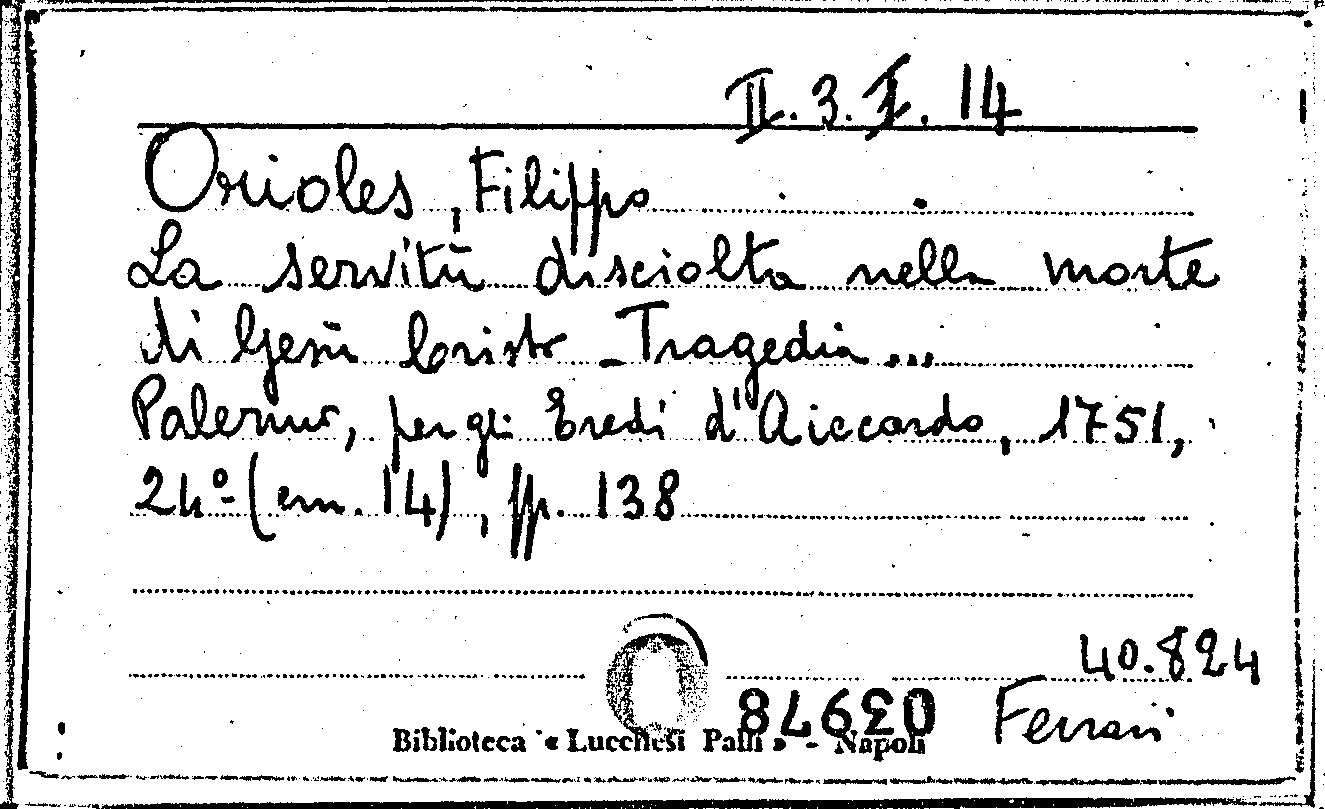 II. 3. I. 14
Orioles, Filippo
La servitù disciolta nella morte
di Gesù Cristo - Tragedia...
Palermo, per gli Eredi d'Aiccardo, 1751,
24º (cm. 14), pp. 138
40.824
039784
Ferrari
Biblioteca « Lucchesi Palli » - Napoli